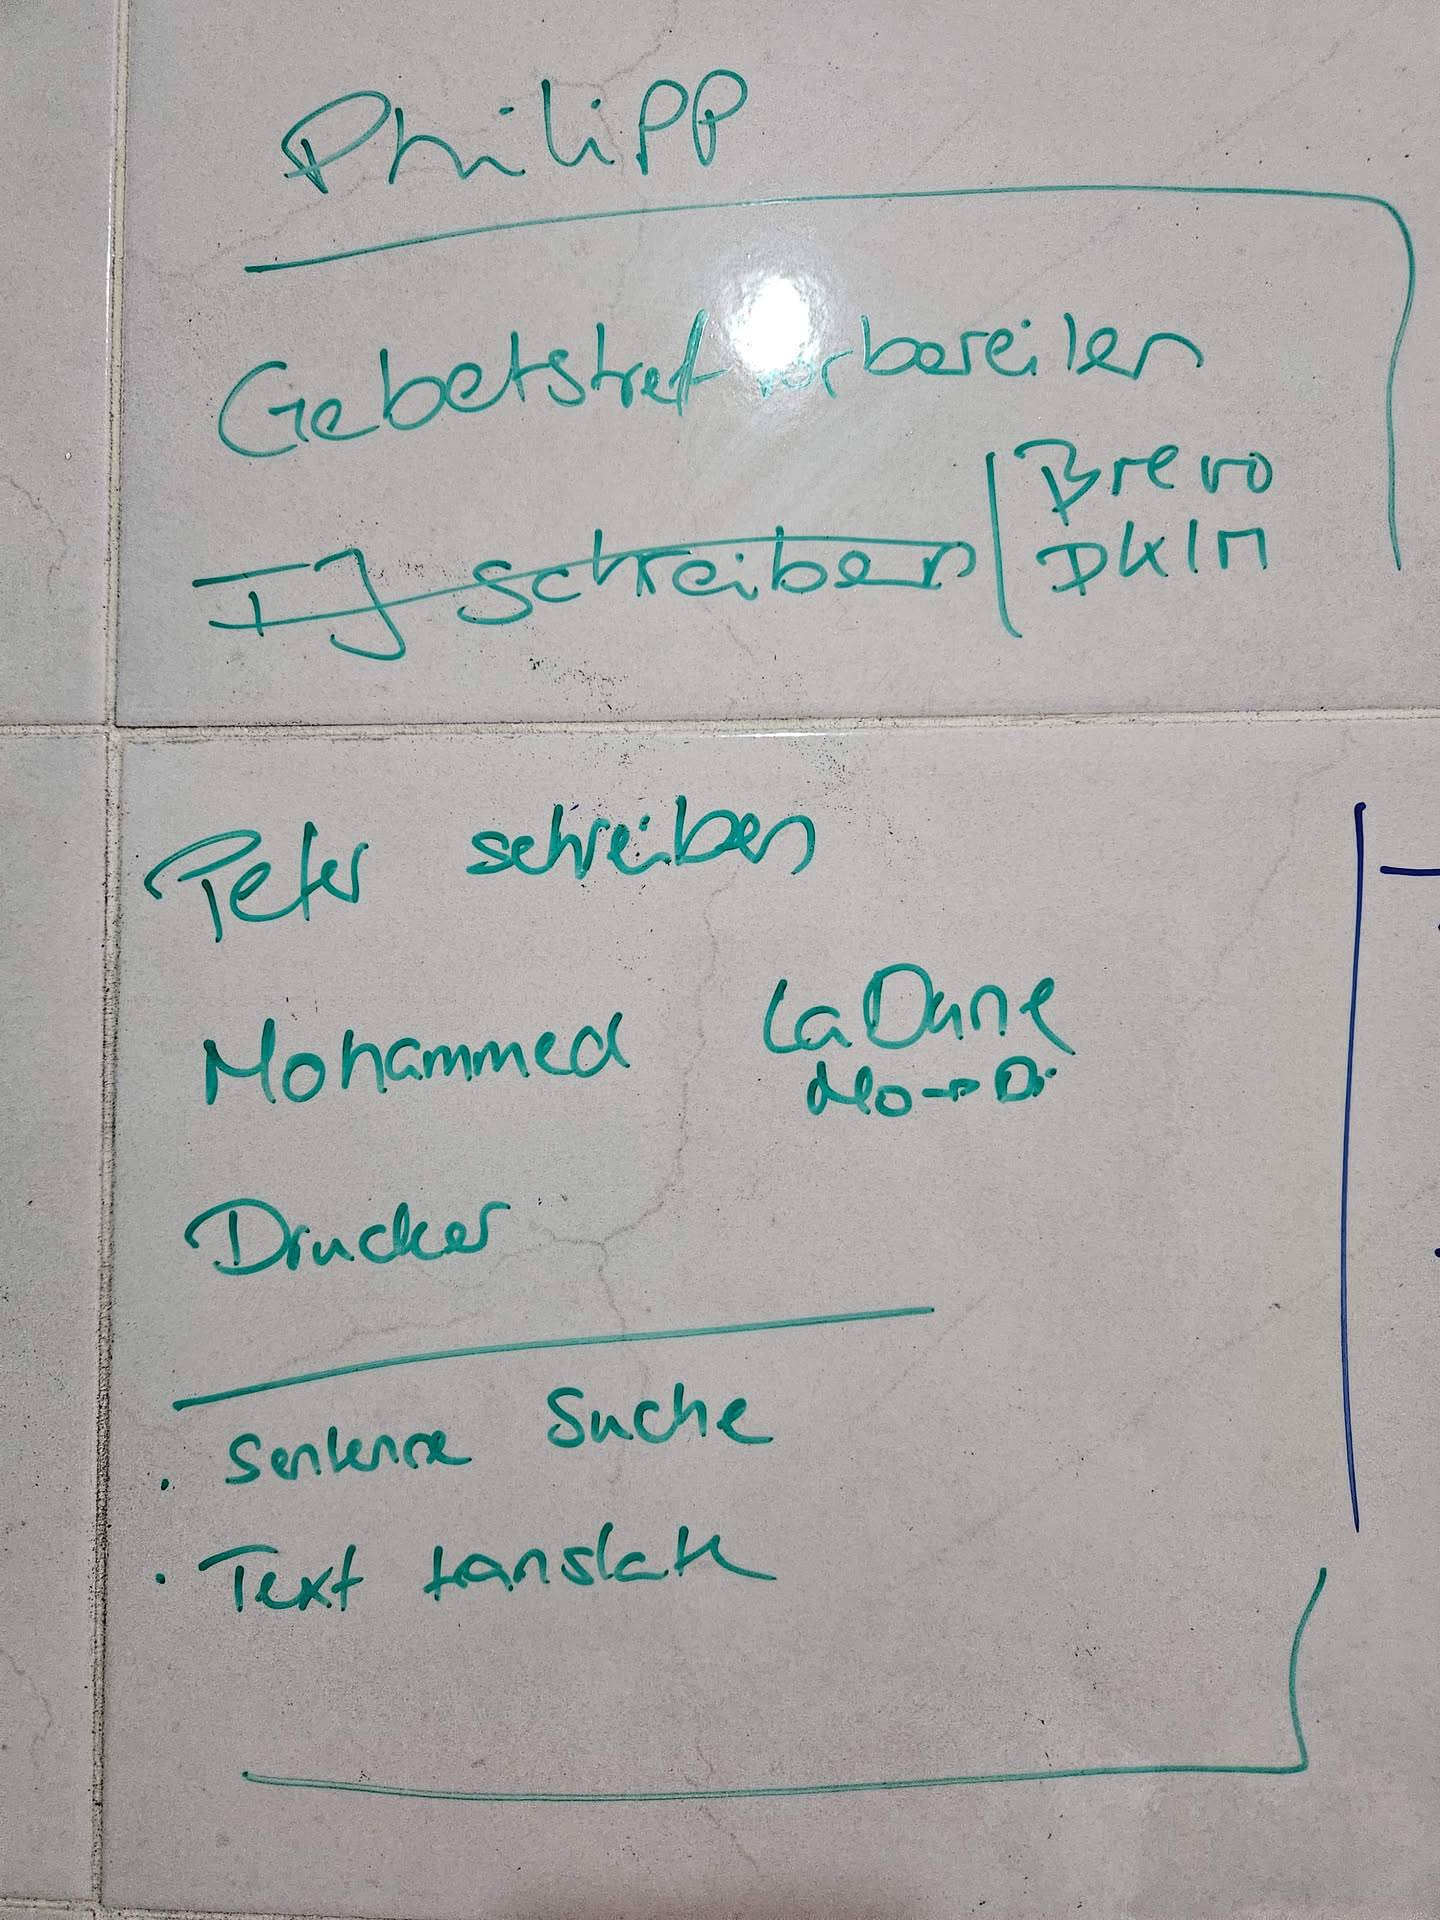 Philipp
Gebetstref vorbereiten
IJ schreiben
Brevo
DKIM
Peter schreiben
Mohammed LaDune
Mo → Di
Drucker
· Sentence Suche
· Text translate